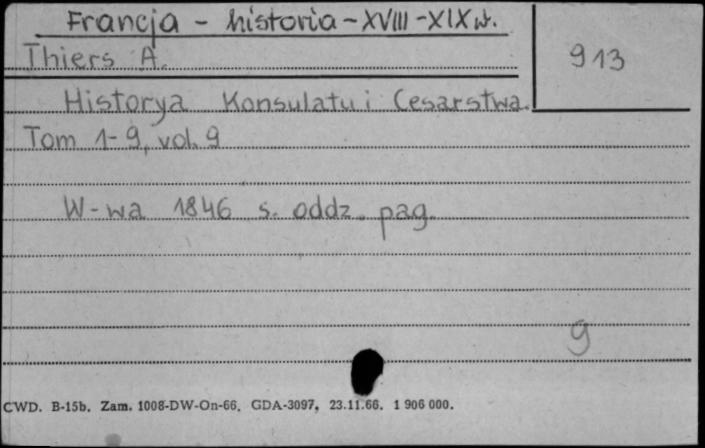 Francja - historia - XVIII - XIX w.
Thiers A.
913
Historya Konsulatu i Cesarstwa.
Tom 1-9, vol. 9
W-wa 1846 s. oddz. pag.
9
CWD. B-15b. Zam. 1008-DW-On-66. GDA-3097, 23.11.66. 1 906 000.